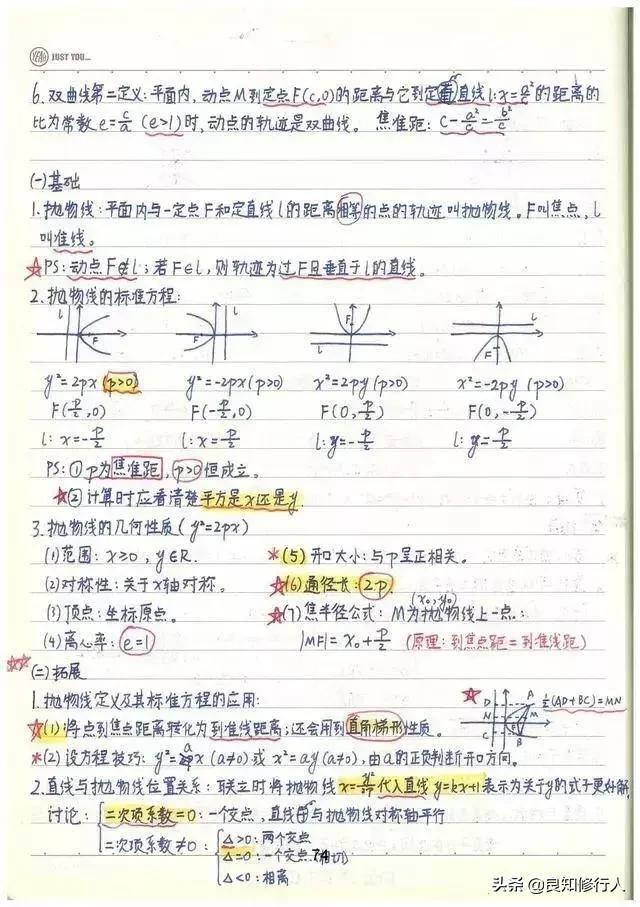 YEAH JUST YOU...
6. 双曲线第二定义:平面内,动点M到定点F(c,0)的距离与它到定直线l:x=a²/c的距离的
比为常数e=c/a (e>1)时,动点的轨迹是双曲线。 焦准距:c-a²/c=b²/c
(一)基础
1. 抛物线:平面内与一定点F和定直线l的距离相等的点的轨迹叫抛物线。F叫焦点,l
叫准线。
☆PS:动点F∉l;若F∈l,则轨迹为过F且垂直于l的直线。
2. 抛物线的标准方程:
F F l l F
y²=2px (p>0) y²=-2px (p>0) x²=2py (p>0) x²=-2py (p>0)
F(p/2,0) F(-p/2,0) F(0,p/2) F(0,-p/2)
l:x=-p/2 l:x=p/2 l:y=-p/2 l:y=p/2
PS:①p为焦准距,p>0恒成立。
☆②计算时应看清楚平方是x还是y.
3. 抛物线的几何性质(y²=2px)
(1)范围:x≥0,y∈R. *(5)开口大小:与p呈正相关。
(2)对称性:关于x轴对称。 ☆(6)通径长:2p.
(3)顶点:坐标原点。 ☆(7)焦半径公式:M(x₀,y₀)为抛物线上一点:
(4)离心率:e=1 |MF|=x₀+p/2 (原理:到焦点距=到准线距)
☆☆(二)拓展
1. 抛物线定义及其标准方程的应用:
☆ D N C A M B ½(AD+BC)=MN
☆(1)将点到焦点距离转化为到准线距离;还会用到直角梯形性质。
*(2)设方程技巧:y²=ax(a≠0)或x²=ay(a≠0),由a的正负判断开口方向。
2. 直线与抛物线位置关系:联立时将抛物线x=y²/2p代入直线y=kx+1表示为关于y的式子更好解
讨论:二次项系数=0:一个交点,直线与抛物线对称轴平行
二次项系数≠0:Δ>0:两个交点
Δ=0:一个交点,相切
Δ<0:相离
74
头条@良知修行人